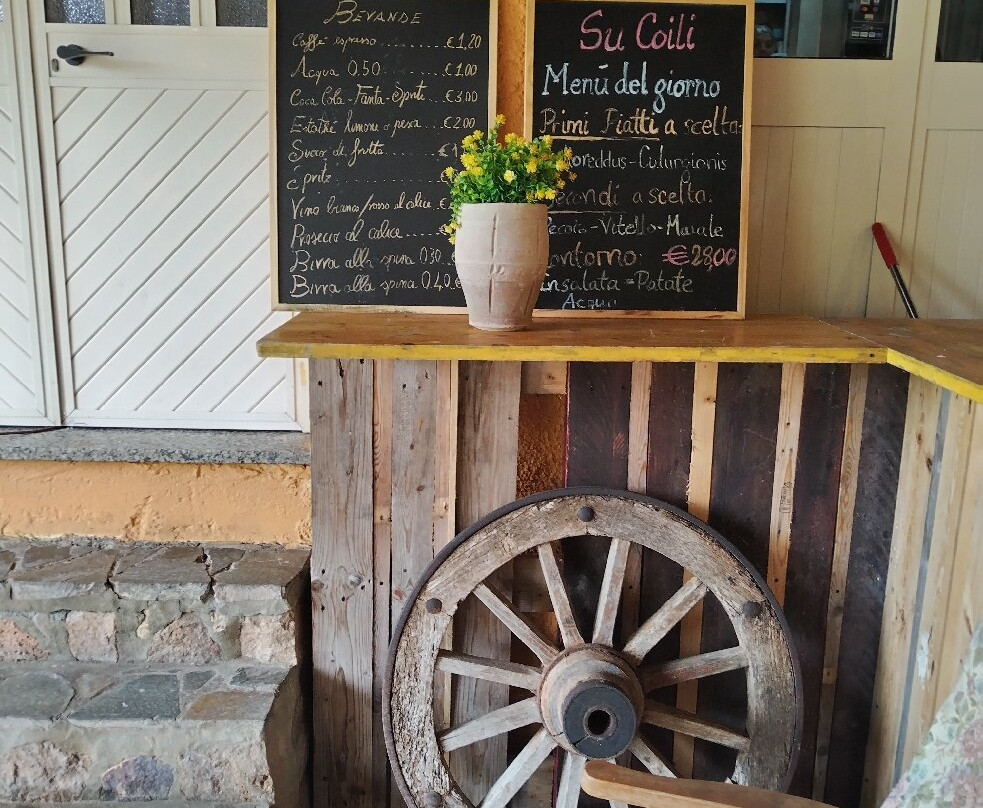 BEVANDE
Caffè espresso ........ € 1,20
Acqua 0.50 ....... € 1.00
Coca Cola - Fanta - Sprite ... € 3,00
Estathé limone o pesca ... € 2.00
Succo di frutta ........ €
Spritz
Vino bianco/rosso al calice .. €
Prosecco al calice .......
Birra alla spina 0.30
Birra alla spina 0.4.0
Su Coili
Menù del giorno
Primi Piatti a scelta:
Culurgionis
a scelta:
Vitello - Maiale
€ 28,00
Insalata - Patate
Acqua